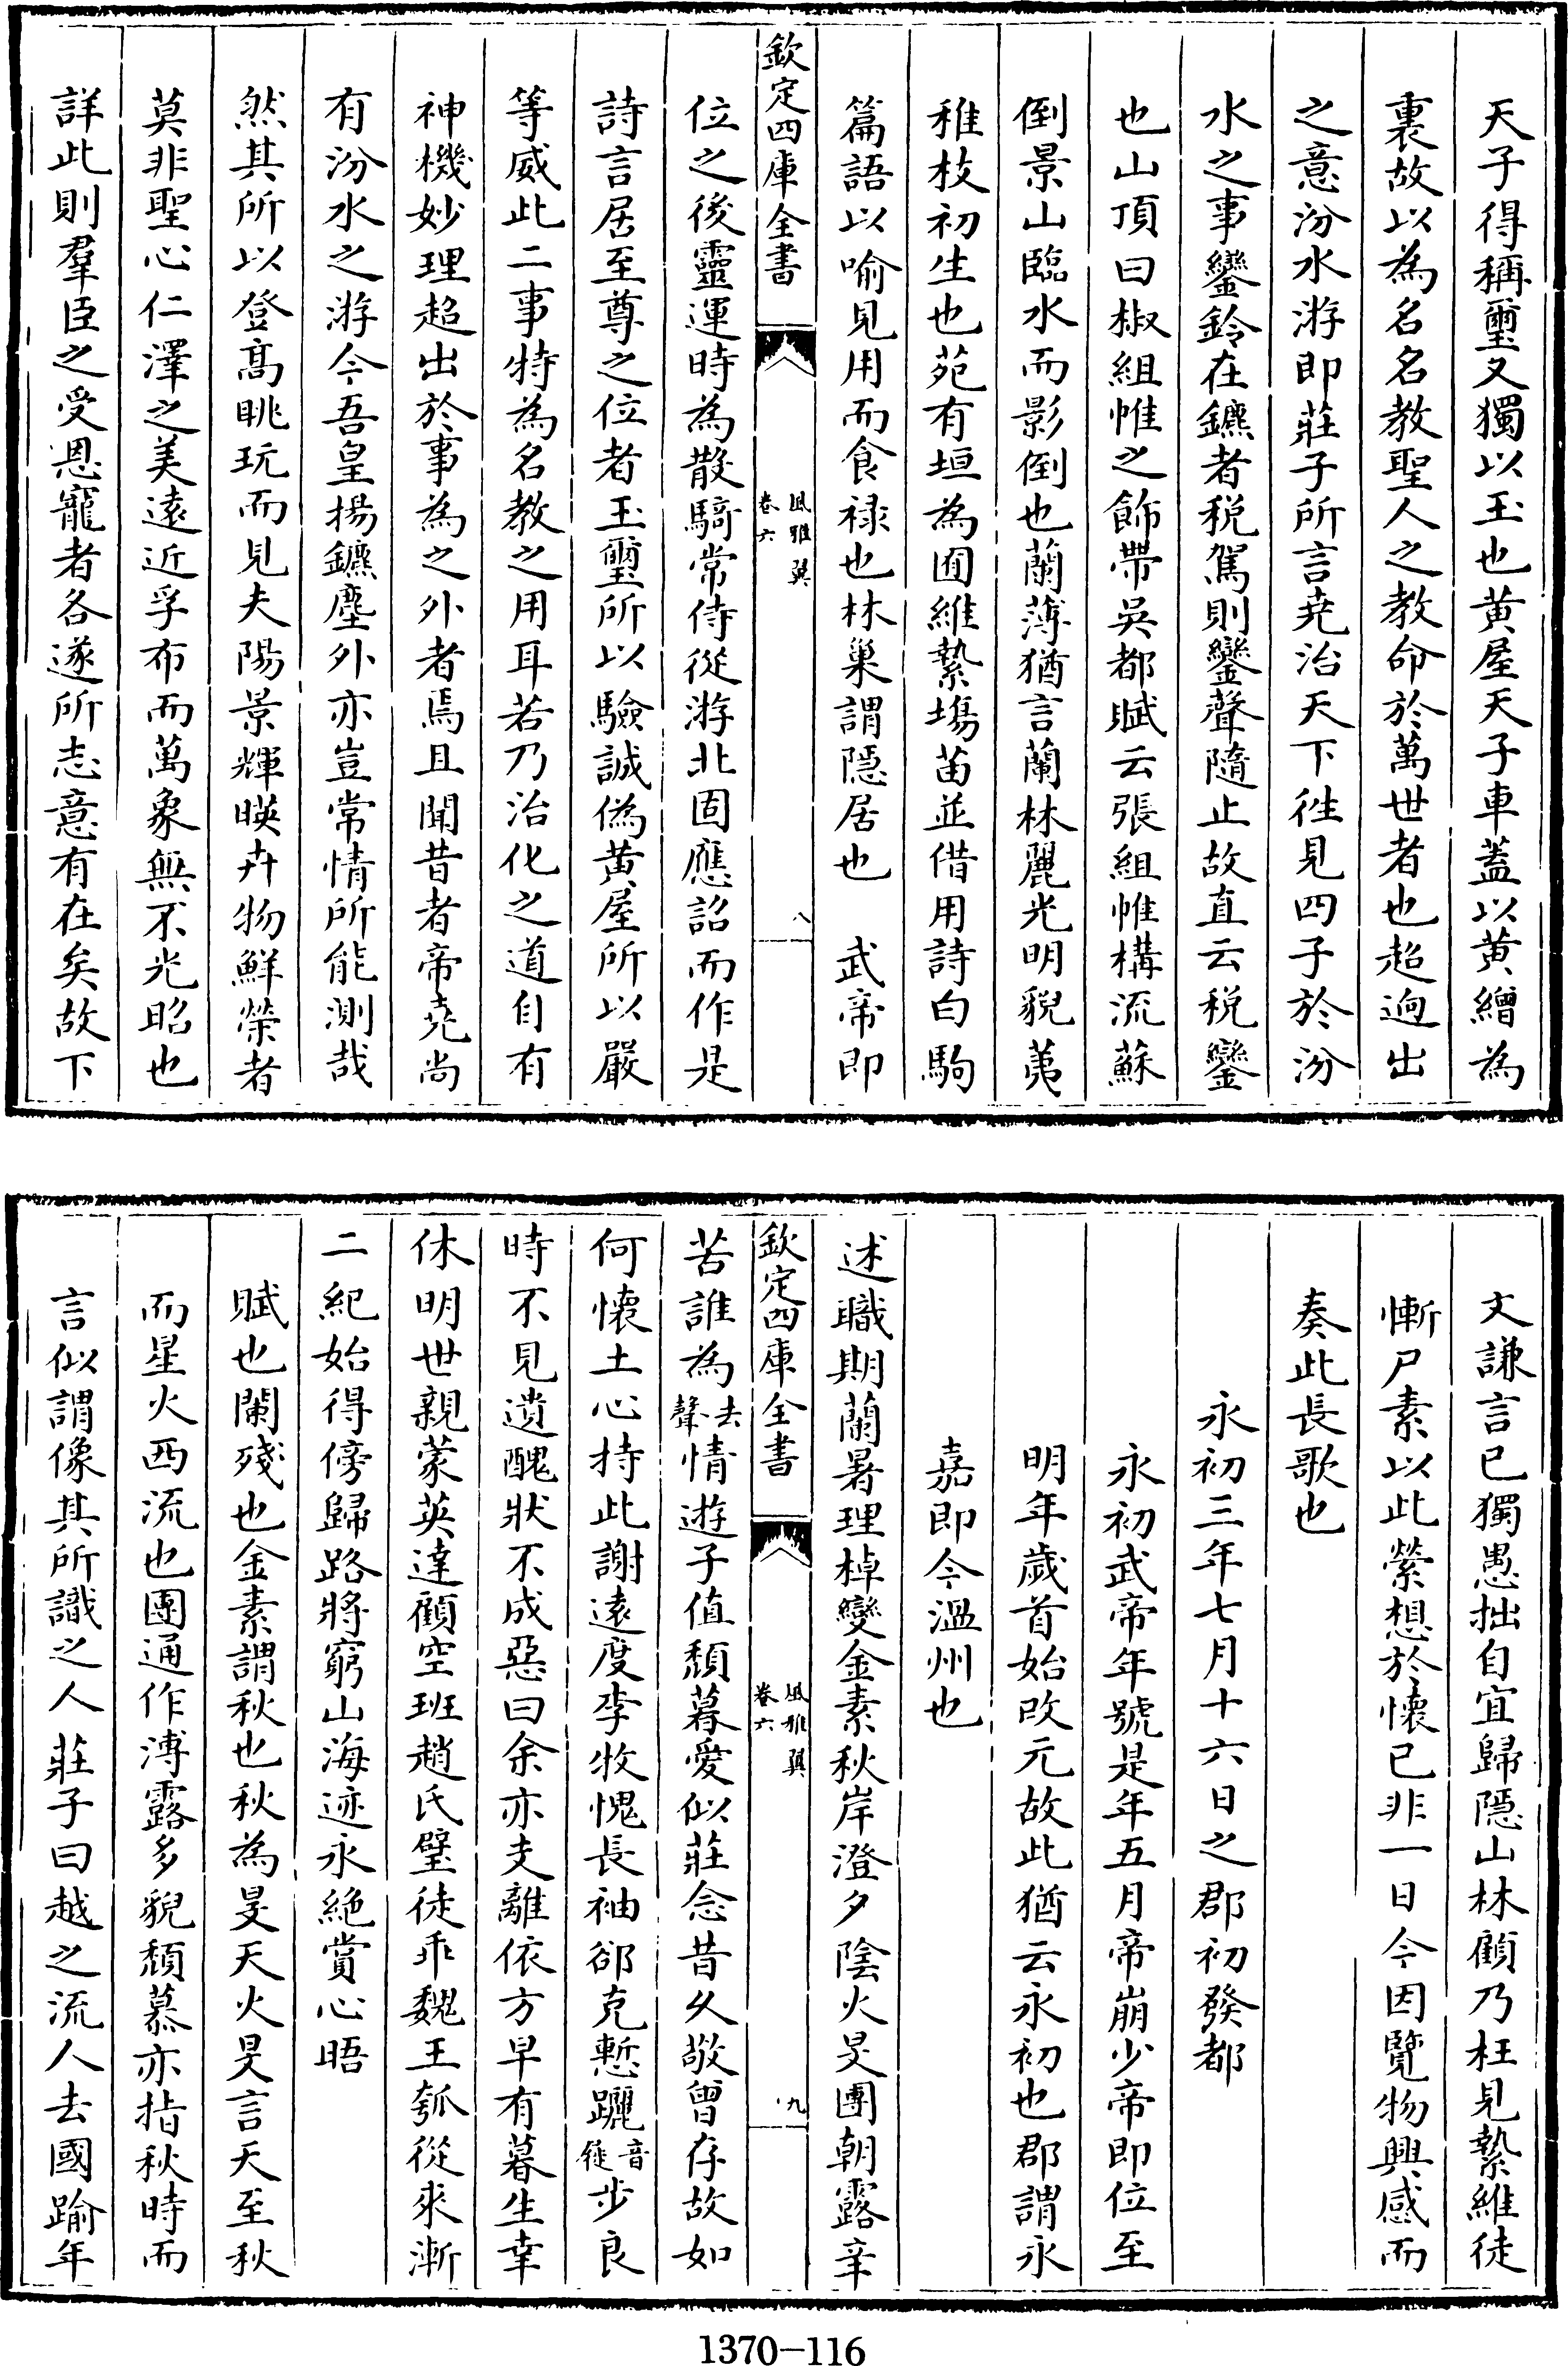 天子得稱璽又獨以玉也黄屋天子車蓋以黄繒為
裏故以為名名教聖人之教命於萬世者也超逈出
之意汾水游即莊子所言堯治天下徃見四子於汾
水之事鑾鈴在鑣者税駕則鑾聲隨止故直云税鑾
也山頂曰椒組帷之飾帶吳都賦云張組帷構流蘇
倒景山臨水而影倒也蘭薄猶言蘭林麗光明貌荑
稚枝初生也苑有垣為囿維縶塲苗並借用詩白駒
篇語以喻見用而食禄也林巢謂隱居也　武帝即
欽定四庫全書
風雅翼
卷六
八
位之後靈運時為散騎常侍從游北固應詔而作是
詩言居至尊之位者玉璽所以驗誠偽黄屋所以嚴
等威此二事特為名教之用耳若乃治化之道自有
神機妙理超出於事為之外者焉且聞昔者帝堯尚
有汾水之游今吾皇揚鑣塵外亦豈常情所能測哉
然其所以登髙眺玩而見夫陽景輝暎卉物鮮榮者
莫非聖心仁澤之美遠近孚布而萬象無不光昭也
詳此則羣臣之受恩寵者各遂所志意有在矣故下
文謙言已獨愚拙自宜歸隱山林顧乃枉見縶維徒
慚尸素以此縈想於懐已非一日今因覽物興感而
奏此長歌也
永初三年七月十六日之郡初發都
永初武帝年號是年五月帝崩少帝即位至
明年歲首始改元故此猶云永初也郡謂永
嘉即今溫州也
述職期蘭暑理棹變金素秋岸澄夕陰火旻團朝露辛
欽定四庫全書
風雅翼
卷六
九
苦誰為去聲情遊子值頹暮愛似莊念昔久敬曾存故如
何懐土心持此謝遠度李牧愧長袖郤克慙躧音徙步良
時不見遺醜狀不成惡曰余亦支離依方早有暮生幸
休明世親蒙英達顧空班趙氏璧徒乖魏王瓠從來漸
二紀始得傍歸路將窮山海迹永絶賞心晤
賦也闌殘也金素謂秋也秋為旻天火旻言天至秋
而星火西流也團通作漙露多貌頹慕亦指秋時而
言似謂像其所識之人莊子曰越之流人去國踰年
1370-116